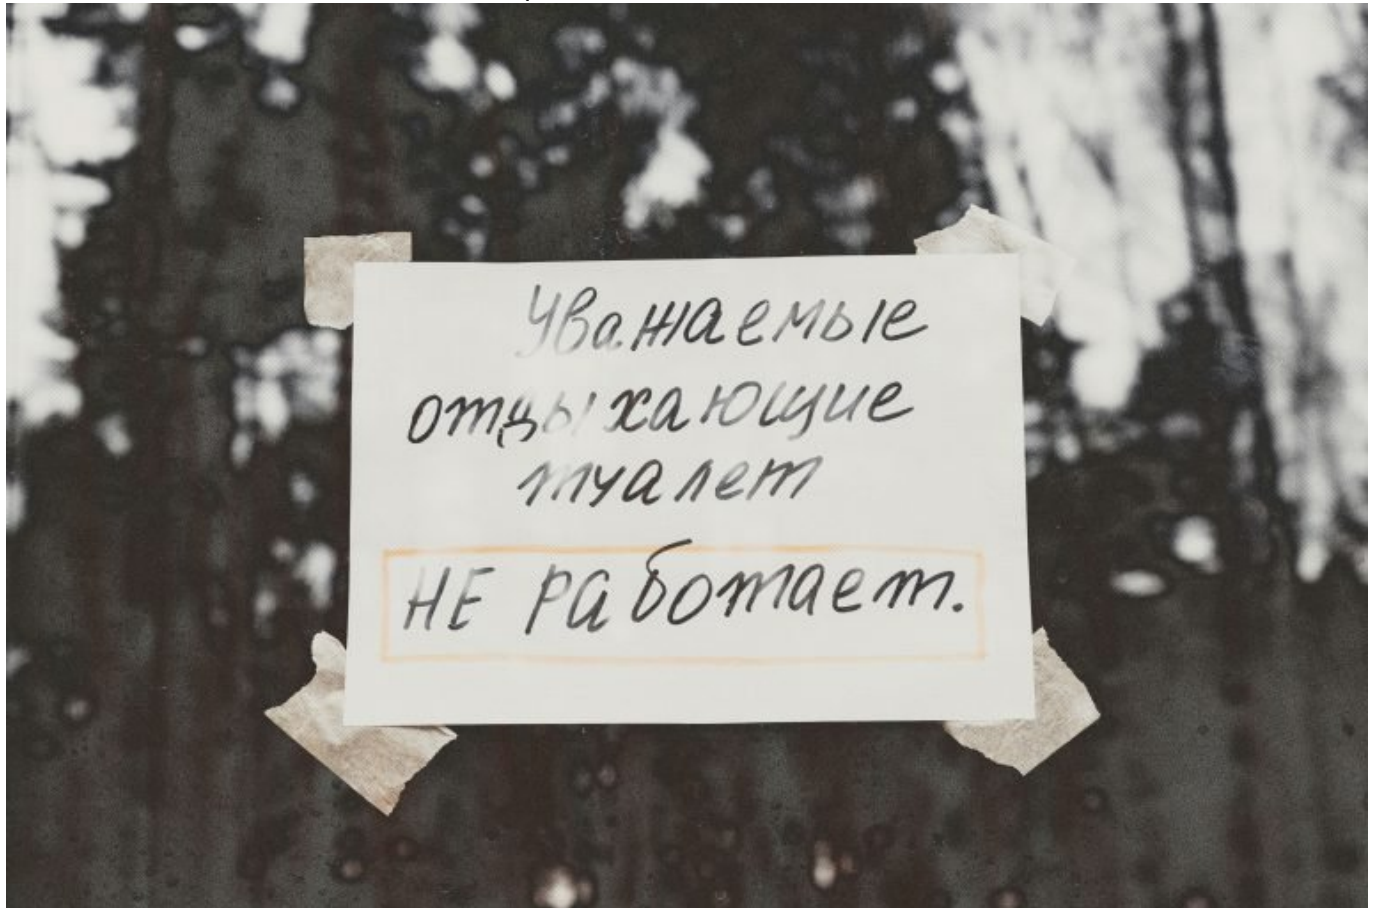 Уважаемые
отдыхающие
туалет
НЕ работает.